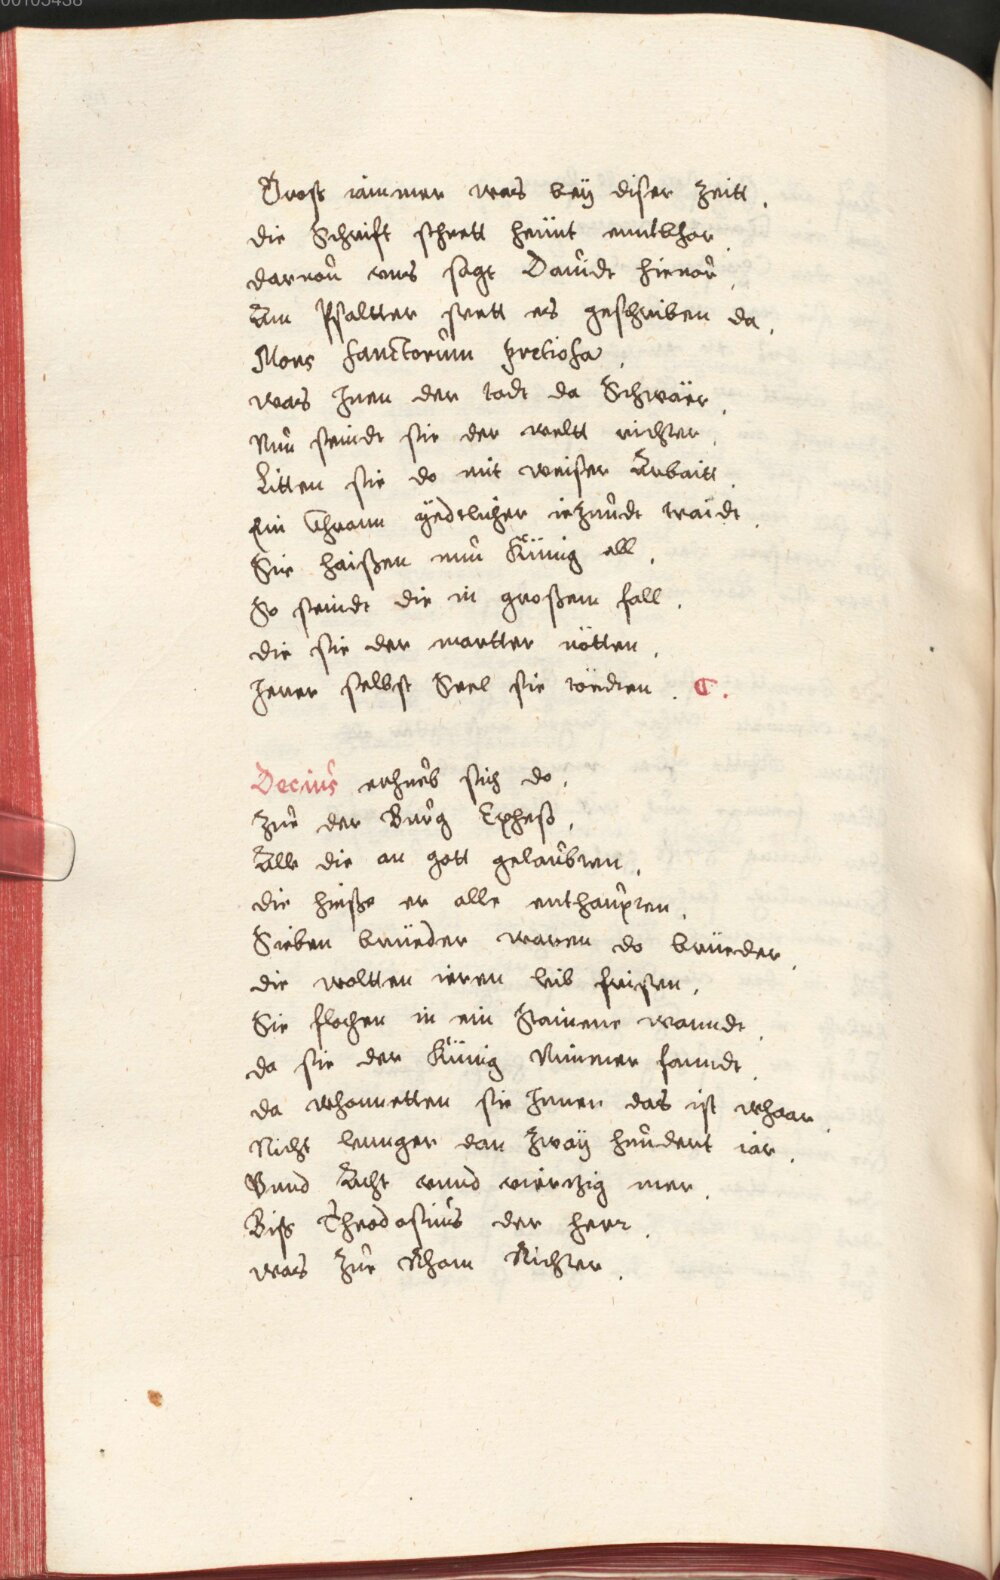 00105438
Groß iammer was beÿ diser Zeitt.
die Schrifft schrett heünt enntbhor
daruoŭ vns sagt Daŭidt hieuor,
Am Psaltter stett es geschriben da,
Mors sanctorŭm pretiosa,
was Jnen der todt da Schwär,
Nŭn seindt sie der weltt richter,
Litten sie do mit weiser Arbaitt,
Ein Thronn yedtlicher iezŭndt traidt,
Sie haißen nŭn Künig all,
So seindt die in großem fall,
die sie der martter nötten,
Jerer selbst Seel sie tödten. C.
Deciŭs erhŭeb sich do,
Zŭe der Bŭrg Epheß,
Alle die an gott gelaŭbten,
die hieße er alle enthaŭpten,
Sieben brüeder waren do brüeder,
die woltten ieren leib fristen,
Sie flochen in ein Stainene wanndt
da sie der Künig Nimmer fanndt,
da whonnetten sie Jnnen das ist whaar
Nicht lennger dan Zwaÿ hŭndert iar,
Vnnd Acht vnnd viertzig mer,
Biß Theodosiŭs der herr
was Zŭe Rhom Richter,